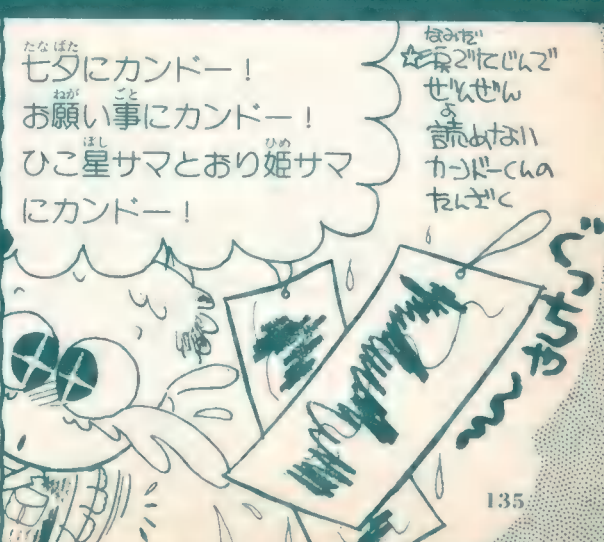 七夕にカンドー!
お願い事にカンドー!
ひこ星サマとおり姫サマ
にカンドー!
☆涙でにじんで
ぜんぜん
読めない
カンドーくんの
たんざく
べっちゃ〜
135